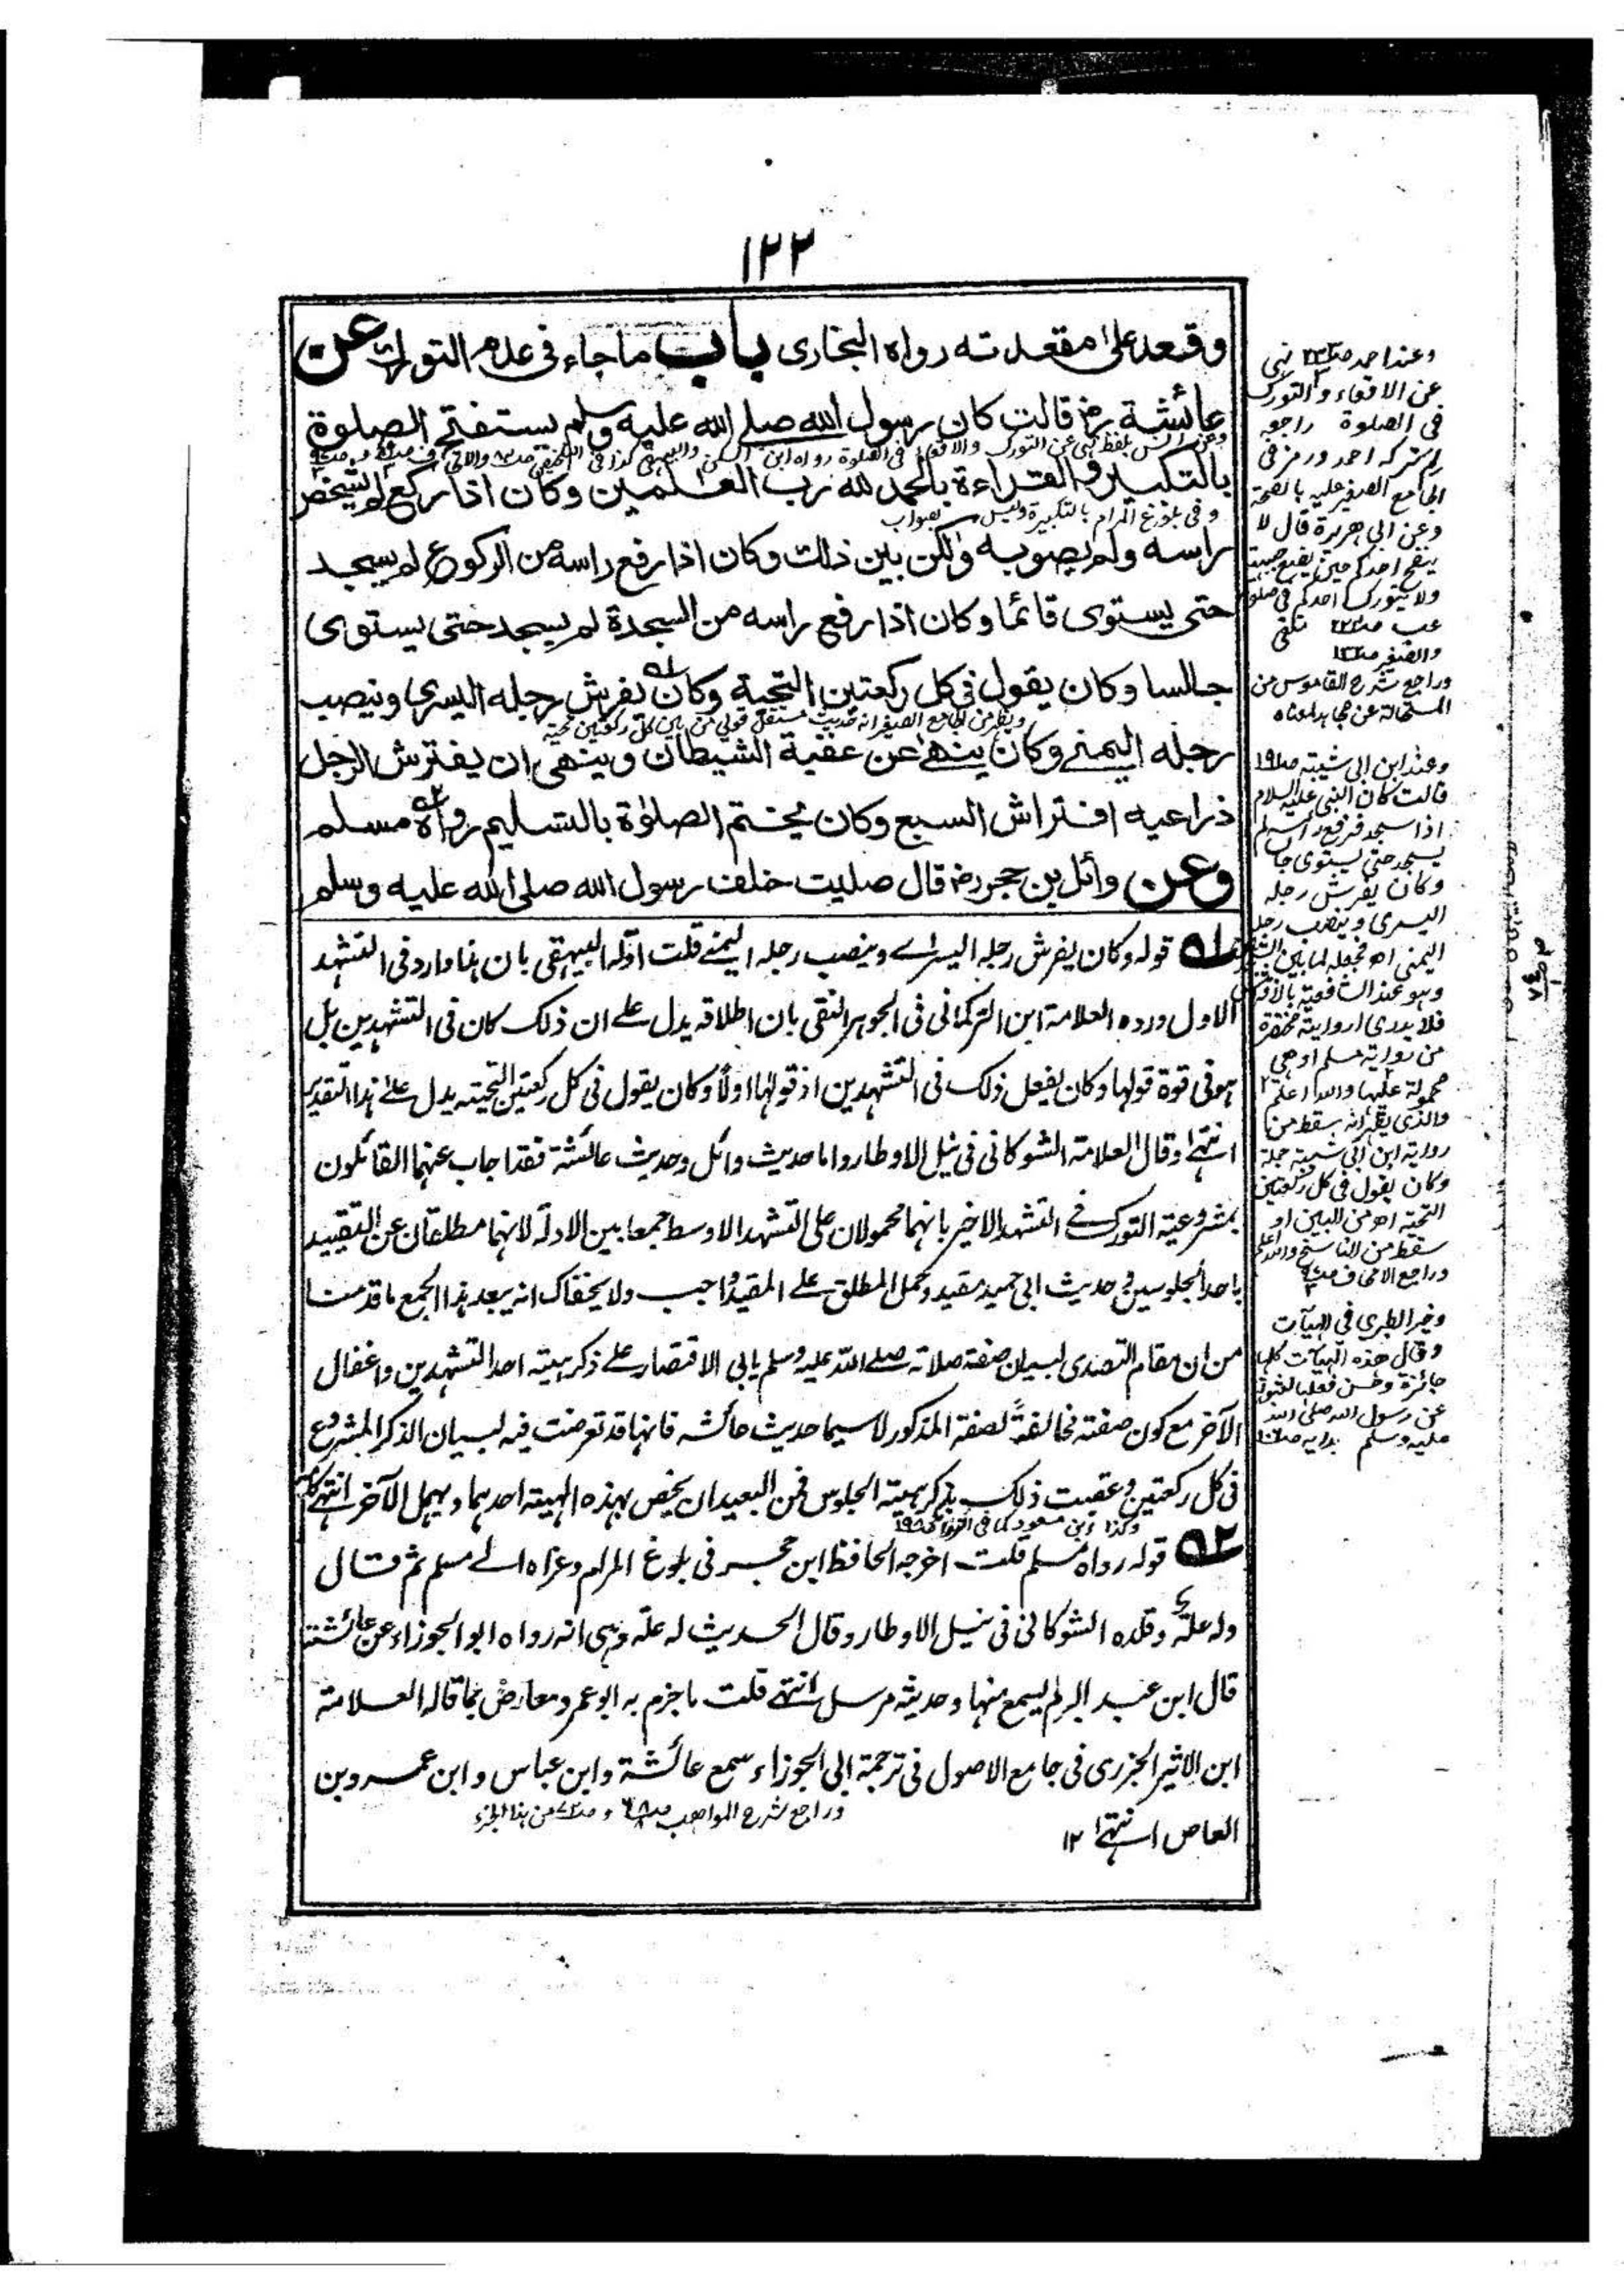 ١٢٢
وقعد على مقعدته رواه البخارى باب ماجاء فى عدم التورك عن
عائشة رض قالت كان رسول الله صلى الله عليه وسلم يستفتح الصلوة
وعن انس بلفظ نهى عن التورك والاقعاء فى الصلوة رواه ابن السكن والبيهقى كذا فى التلخيص
بالتكبير والقراءة بالحمد لله رب العلمين وكان اذا ركع لم يشخص
وفى بلوغ المرام بالتكبيرة وليس بصواب
راسه ولم يصوبه ولكن بين ذلك وكان اذا رفع راسه من الركوع لم يسجد
حتى يستوى قائما وكان اذا رفع راسه من السجدة لم يسجد حتى يستوى
جالسا وكان يقول فى كل ركعتين التحية وكان يفرش رجله اليسرى وينصب
رجله اليمنى وكان ينهى عن عقبة الشيطان وينهى ان يفترش الرجل
ذراعيه افتراش السبع وكان يختم الصلوٰة بالتسليم رواه مسلم
وعن وائل بن حجر رض قال صليت خلف رسول الله صلى الله عليه وسلم
١ قوله وكان يفرش رجله اليسرى وينصب رجله اليمنى قلت اوّله البيهقى بان هذا وارد فى التشهد
الاول ورده العلامة ابن التركمانى فى الجوهر النقى بان اطلاقه يدل على ان ذلك كان فى التشهدين بل
هو فى قوة قولها وكان يفعل ذلك فى التشهدين اذ قولها اولًا وكان يقول فى كل ركعتين التحية يدل على هذا التقدير
انتهى وقال العلامة الشوكانى فى نيل الاوطار واما حديث وائل وحديث عائشة فقد اجاب عنهما القائلون
بمشروعية التورك فى التشهد الاخير بانهما محمولان على التشهد الاوسط جمعا بين الادلة لانهما مطلقان عن التقييد
باحد الجلوسين وحديث ابى حميد مقيد وحمل المطلق على المقيد واجب ولا يخفاك انه يبعد هذا الجمع ما قدمنا
من ان مقام التصدى لبيان صفة صلاته صلى الله عليه وسلم يابى الاقتصار على ذكر هيئة احد التشهدين واغفال
الآخر مع كون صفته مخالفةً لصفة المذكور لا سيما حديث عائشه فانها قد تعرضت فيه لبيان الذكر المشروع
فى كل ركعتين وعقبت ذلك بذكر هيئة الجلوس فمن البعيد ان يخص بهذه الهيئة احدهما ويهمل الآخر انتهى كلامه
وكذا ابن مسعود كما فى
٢ قوله رواه مسلم قلت اخرجه الحافظ ابن حجر فى بلوغ المرام وعزاه الى مسلم ثم قال
وله علة وقلده الشوكانى فى نيل الاوطار وقال الحديث له علّة وهى انه رواه ابو الجوزاء عن عائشة
قال ابن عبد البر لم يسمع منها وحديثه مرسل انتهى قلت ما جزم به ابو عمر ومعارض بما قاله العلامة
ابن الاثير الجزرى فى جامع الاصول فى ترجمة ابى الجوزاء سمع عائشة وابن عباس وابن عمرو بن
العاص انتهى ١٢
وراجع شرح المواهب
وعند احمد نهى
عن الاقعاء والتورك
فى الصلوة راجع
الجامع الصغير عليه بالصحة
وعن ابى هريرة قال لا
ولا يتورك احدكم فى صلوته
وراجع شرح القاموس من
وعند ابن ابى شيبة
قالت كان النبى عليه السلام
اذا سجد فرفع راسه لم
يسجد حتى يستوى جالسا
وكان يفرش رجله
اليسرى وينصب رجله
وهو عند الشافعية بالافتراش
فلا يدرى اروايته مختصرة
من رواية مسلم او هى
محمولة عليها والله اعلم
والذى يظهر انه سقط من
رواية ابن ابى شيبة جملة
وكان يقول فى كل ركعتين
التحية اه من البين او
سقط من الناسخ والله اعلم
وخير الطبرى فى الهيآت
وقال هذه الهيآت كلها
جائزة وحسن فعلها لثبوته
عن رسول الله صلى الله
عليه وسلم بدايه